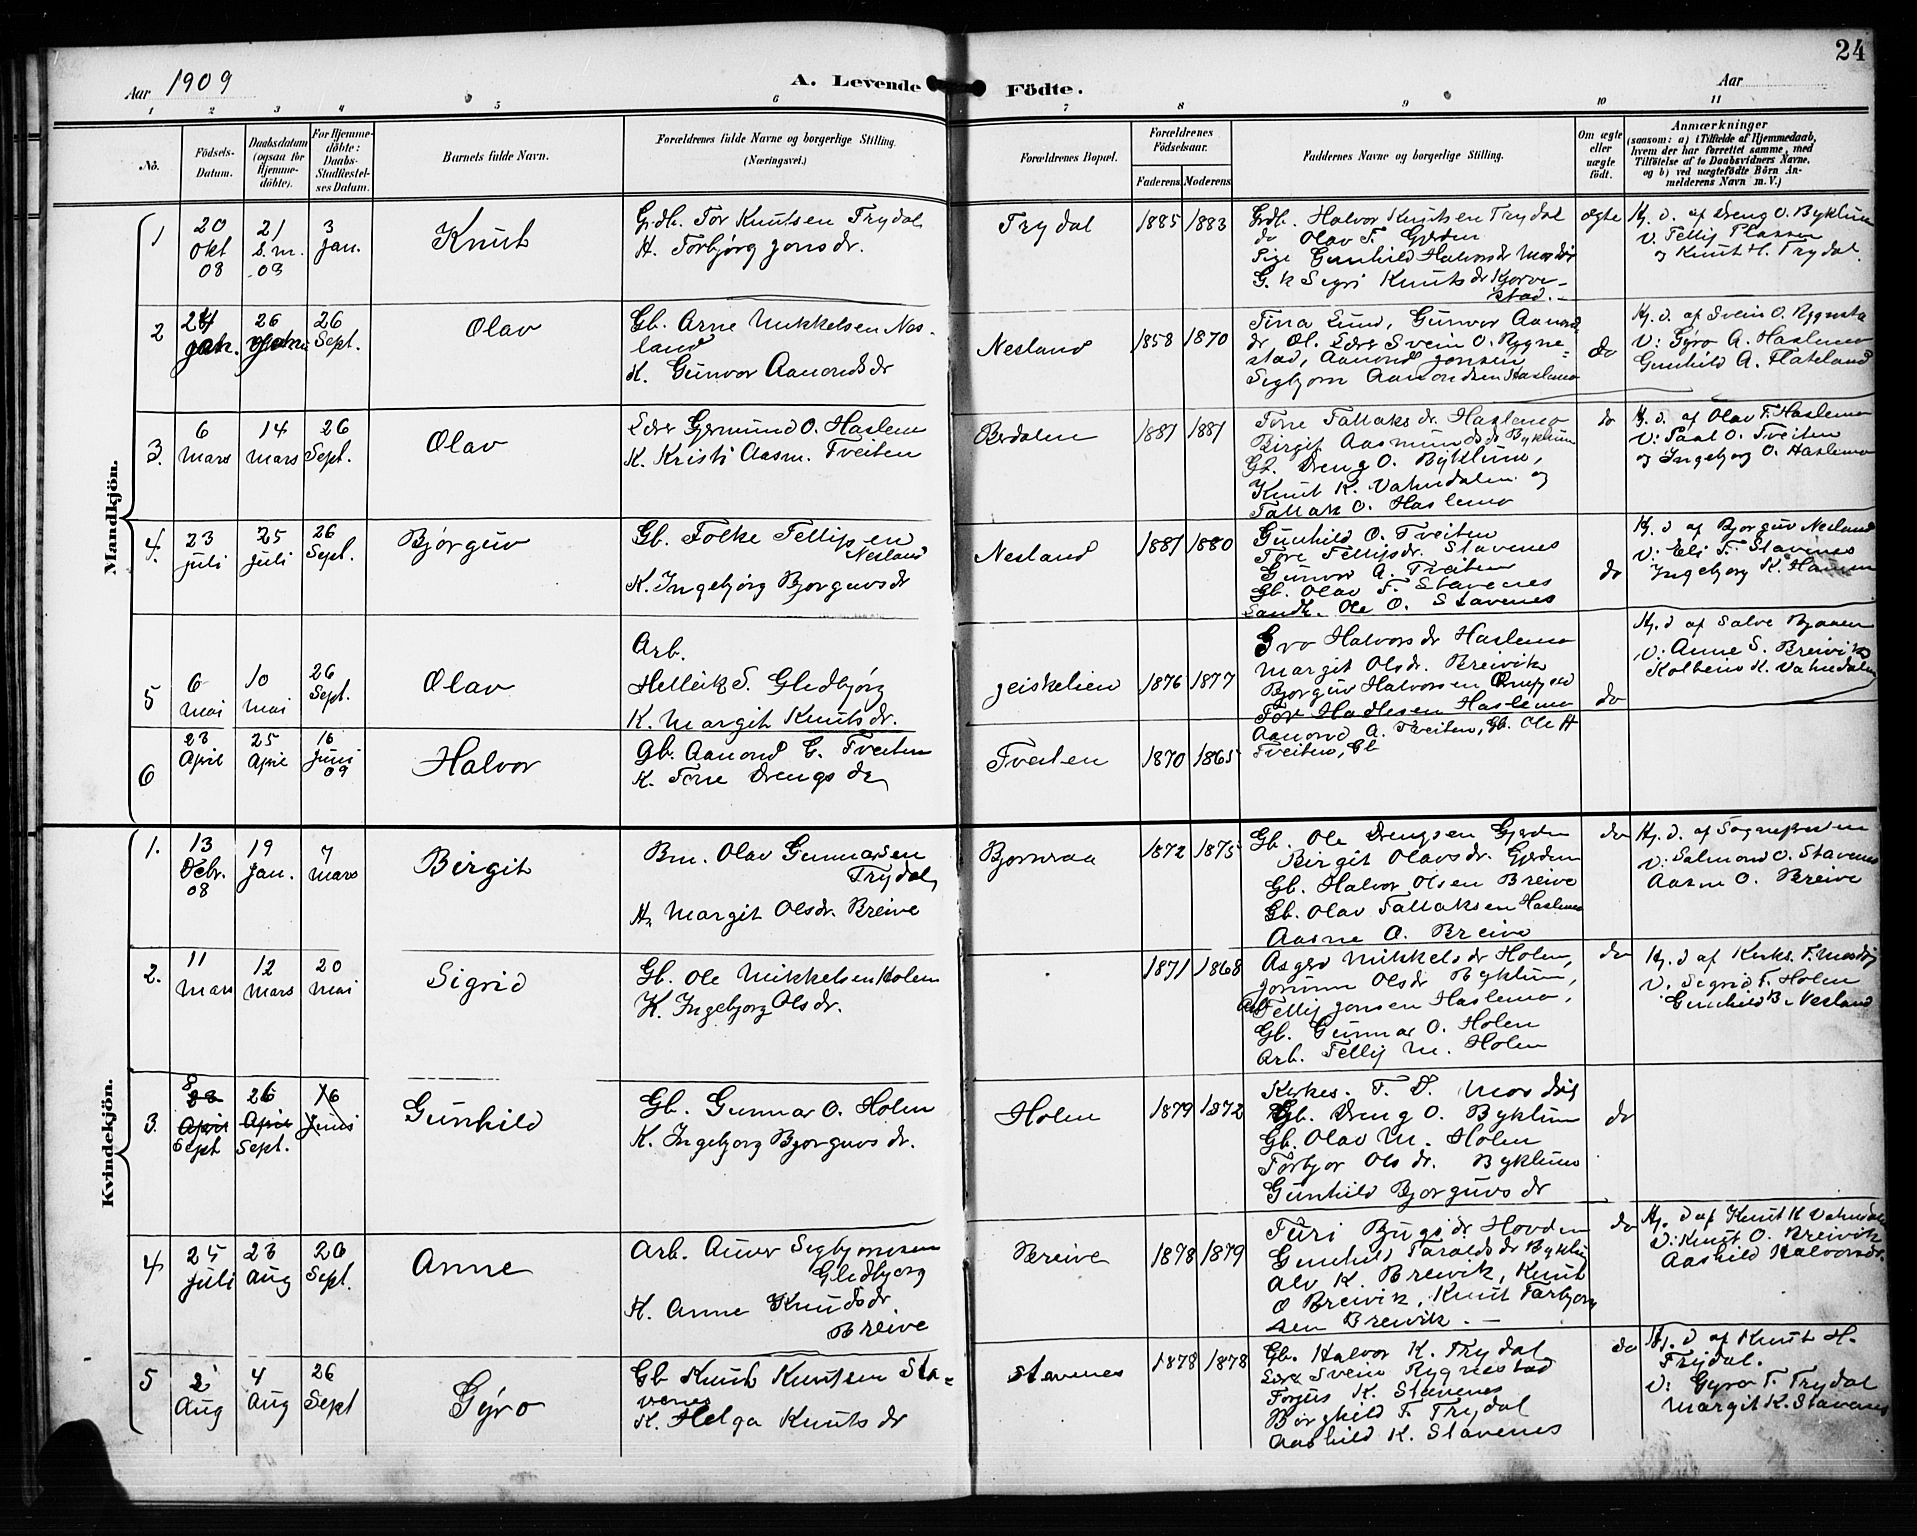 24
Aar 1909
A. Levende Födte.
Aar
1 2 3 4 5 6 7 8 9 10 11
No.
Födsels-
Datum.
Daabsdatum
(ogsaa for
Hjemme-
döbte).
For Hjemme-
döbte:
Daabs-
Stadfæstel-
ses Datum.
Barnets fulde Navn.
Forældrenes fulde Navne og borgerlige Stilling.
(Næringsvei.)
Forældrenes Bopæl.
Forældrenes
Födselsaar.
Faderens.
Moderens.
Faddernes Navne og borgerlige Stilling.
Om ægte
eller
uægte
födt.
Anmærkninger
(saasom: a) i Tilfælde af Hjemmedaab,
hvem der har forrettet samme, med
Tilföielse af to Daabsvidners Navne,
og b) ved uægtefödte Börn An-
melderens Navn m. V.)
Mandkjön.
1
20
Okt
08
21
s.m.
08
3
Jan.
Knut
Grdb. Tor Knutsen Trydal
H. Torbjørg Jonsdr.
Trydal
1885
1883
Grdb. Halvor Knutsen Trydal
do Olav T. Gjerden
Pige Gunhild Halvorsdr Mosdøl
G.k Sigri Knutsdr Kjorve-
stad.
ægte
Hj. d. af Dreng O. Byklum
v. Tellij Plassen
og Knut H. Trydal.
2
24
Jan.
26
26
Sept.
Olav
Gb. Arne Mikkelsen Nes-
land
K. Gunvor Aanondsdr
Nesland
1858
1870
Tina Lund, Gunvor Aanonds
dr, Ol. Lærer Svein O. Rygne-
stad, Aanond Jonsen
Segbjorn Aanondsen Haslemo
do
Hj. d. af Svein O. Rygnestad
v: Gyro A. Haslemo
Gunhild A. Flateland
3.
6
Mars
14
Mars
26
Sept.
Olav
Lærer Gjermund O. Haslem
K. Kristi Aasm. Tveiten
Berdalen
1881
1881
Tone Tallaksdr. Haslemo
Birgit Aasmundsdr Byklum
Gb. Dreng O. Byklum,
Knut K. Vatnedalen og
Tallak O. Haslemo
do
Hj. d. af Olav T. Haslemo
v: Paal O. Tveiten
og Ingebjorg O. Haslemo
4.
23
Juli
25
Juli
26
Sept.
Bjørguv
Gb. Folke Tellefsen
Nesland
K. Ingebjørg Bjorguvsdr
Nesland
1881
1880
Gunhild O. Tveiten
Tore Tellefsdr. Stavenes
Gunvor A. Tveiten
Gb. Olav T. Stavenes
Landh. Ole O. Stavenes
do
Hj. d af Bjorguv Nesland
v: Eli T. Stavenes
Ingebjorg K.
5
6
Mai
10
Mai
26
Sept.
Olav
Arb.
Helleik S. Gledbjørg
K. Margit Knutsdr.
Jeiskelien
1876
1877
Gro Halvorsdr Haslemo
Margit Olsdr. Breivik
Bjorguv Halvorsen
Haslemo
do
Hj. d af Salve Bjaaen
v: Anne S. Breivik
Kolbein K. Vatnedalen
6
23
April
25
April
16
Juni
09
Halvor
Gb. Aanond G. Tveiten
K. Tone Drengsdr
Tveiten
1870
1865
Aanond A. Tveiten, Gb. Ole H
Tveiten, Gb
Kvindekjön.
1.
13
Debr.
08
19
Jan.
7
Mars
Birgit
Bm. Olav Gunnarsen
Trydal
H. Margit Olsdr. Breive
Bjornraa
1872
1875
Gb. Ole Drengsen Gjerden
Birgit Olavsdr. Gjerden
Gb. Halvor Olsen Breive
Gb. Olav Tallaksen Haslemo
Aasne O. Breive
do
Hj. d. af Sognepresten
v: Salmond O. Stavenes
Aasne O. Breive
2.
11
Mars
12
Mars
20
Mai
Sigrid
Gb. Ole Mikkelsen Holen
K. Ingebjorg Olsdr.
1871
1868
Asgerd Mikkelsdr Holen,
Jorunn Olsdr Byklum,
Tellij Jonsen Haslemo,
Gb. Gunnar O. Holen
Arb. Tellij M. Holen
do
Hj. d af Kirkes. T. Mosdøl
v. Segrid T. Holen
Gunhild B. Nesland
3.
8
23
April
Sept
26
April
Sept.
16
Juni
Gunhild
Gb. Gunnar O. Holen
K. Ingebjorg Bjorguvsdr.
Holen
1879
1872
Kirkes. T. D. Mosdøl
Gb. Dreng O. Byklum
Gb. Olav M. Holen
Torbjor Olsdr. Byklum
Gunhild Bjorguvsdr
do
4
25
Juli
23
Aug
26
Sept.
Anne
Arb. Anver Segbjornsen
Gledbjorg
K. Anne Knudsdr.
Breive
Breive
1878
1879
Turi Bugsdr. Hovden
Gunhild Taraldsdr Byklum
Alv K. Breivik, Knut
O Breivik, Knut Tarbjorn
sen Breivik. —
do
Hj. d af Knut K Vatnedal
v: Knut O. Breivik
Aashild Halvorsdr.
5
2
Aug
4
Aug
26
Sept
Gyro
Gb Knut Knutsen Sta-
venes
K. Helga Knutsdr
Stavenes
1878
1878
Gb. Halvor K. Trydal
Lærer Svein Rygnestad
Torjus K. Stavenes
Borghild T. Trydal
Aashild K. Stavenes
do
Hj. d af Knut H.
Trydal.
v: Gyro T. Trydal
Margit K. Stavenes